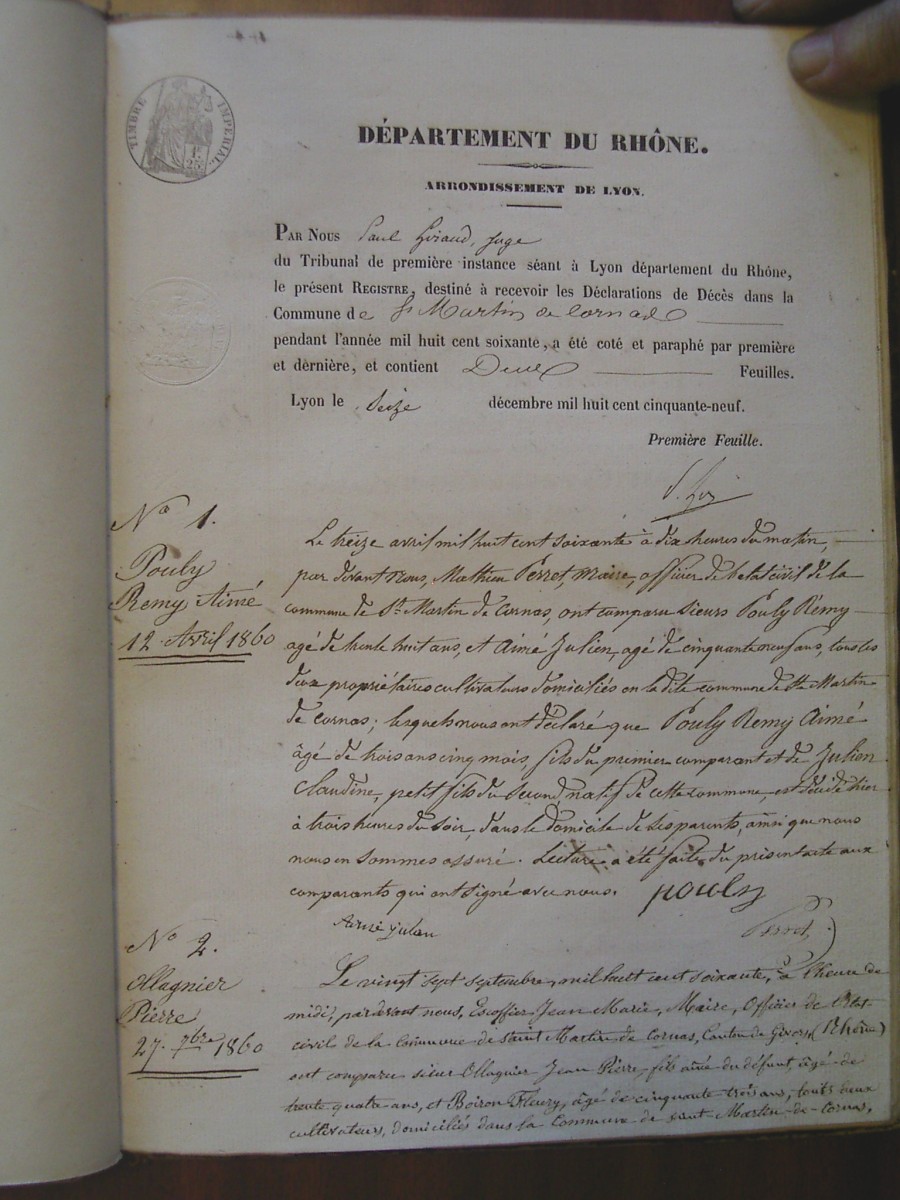 TIMBRE IMPERIAL
1F.
25C.
DÉPARTEMENT DU RHÔNE.
ARRONDISSEMENT DE LYON.
PAR NOUS Paul Giraud, juge
du Tribunal de première instance séant à Lyon département du Rhône,
le présent REGISTRE, destiné à recevoir les Déclarations de Décès dans la
Commune de St Martin de Cornas
pendant l'année mil huit cent soixante, a été coté et paraphé par première
et dernière, et contient Deux Feuilles.
Lyon le Seize décembre mil huit cent cinquante-neuf.
Première Feuille.
No 1.
Pouly
Remy Aimé
12 Avril 1860
Le treize avril mil huit cent soixante à dix heures du matin,
par devant nous, Mathieu Perret, maire, officier de l'etat civil de la
commune de St. Martin de Cornas, ont comparu sieurs Pouly Rémy
agé de trente huit ans, et Aimé Julien, agé de cinquante neuf ans, tous les
deux propriétaires cultivateurs domiciliés en la dite commune de St. Martin
de Cornas; lesquels nous ont déclaré que Pouly Remy Aimé
âgé de trois ans cinq mois, fils du premier comparant et de Julien
Claudine, petit fils du second, natif de cette commune, est décédé hier
à trois heures du soir, dans le domicile de ses parents, ainsi que nous
nous en sommes assuré. Lecture a été faite du présent acte aux
comparants qui ont signé avec nous. pouly
Aimé julien Perret
No 2.
Ollagnier
Pierre
27. 7bre 1860
Le vingt sept septembre, mil huit cent soixante, à l'heure de
midi, pardevant nous, Escoffier Jean Marie, Maire, Officier de l'Etat
civil de la Commune de Saint Martin de Cornas, Canton de Givors (Rhône)
ont comparu sieur Ollagnier Jean Pierre, fils ainé du défunt, âgé de
trente quatre ans, et Boiron Fleury, âgé de cinquante trois ans, touts deux
cultivateurs, domiciliés dans la Commune de saint Martin-de-Cornas,